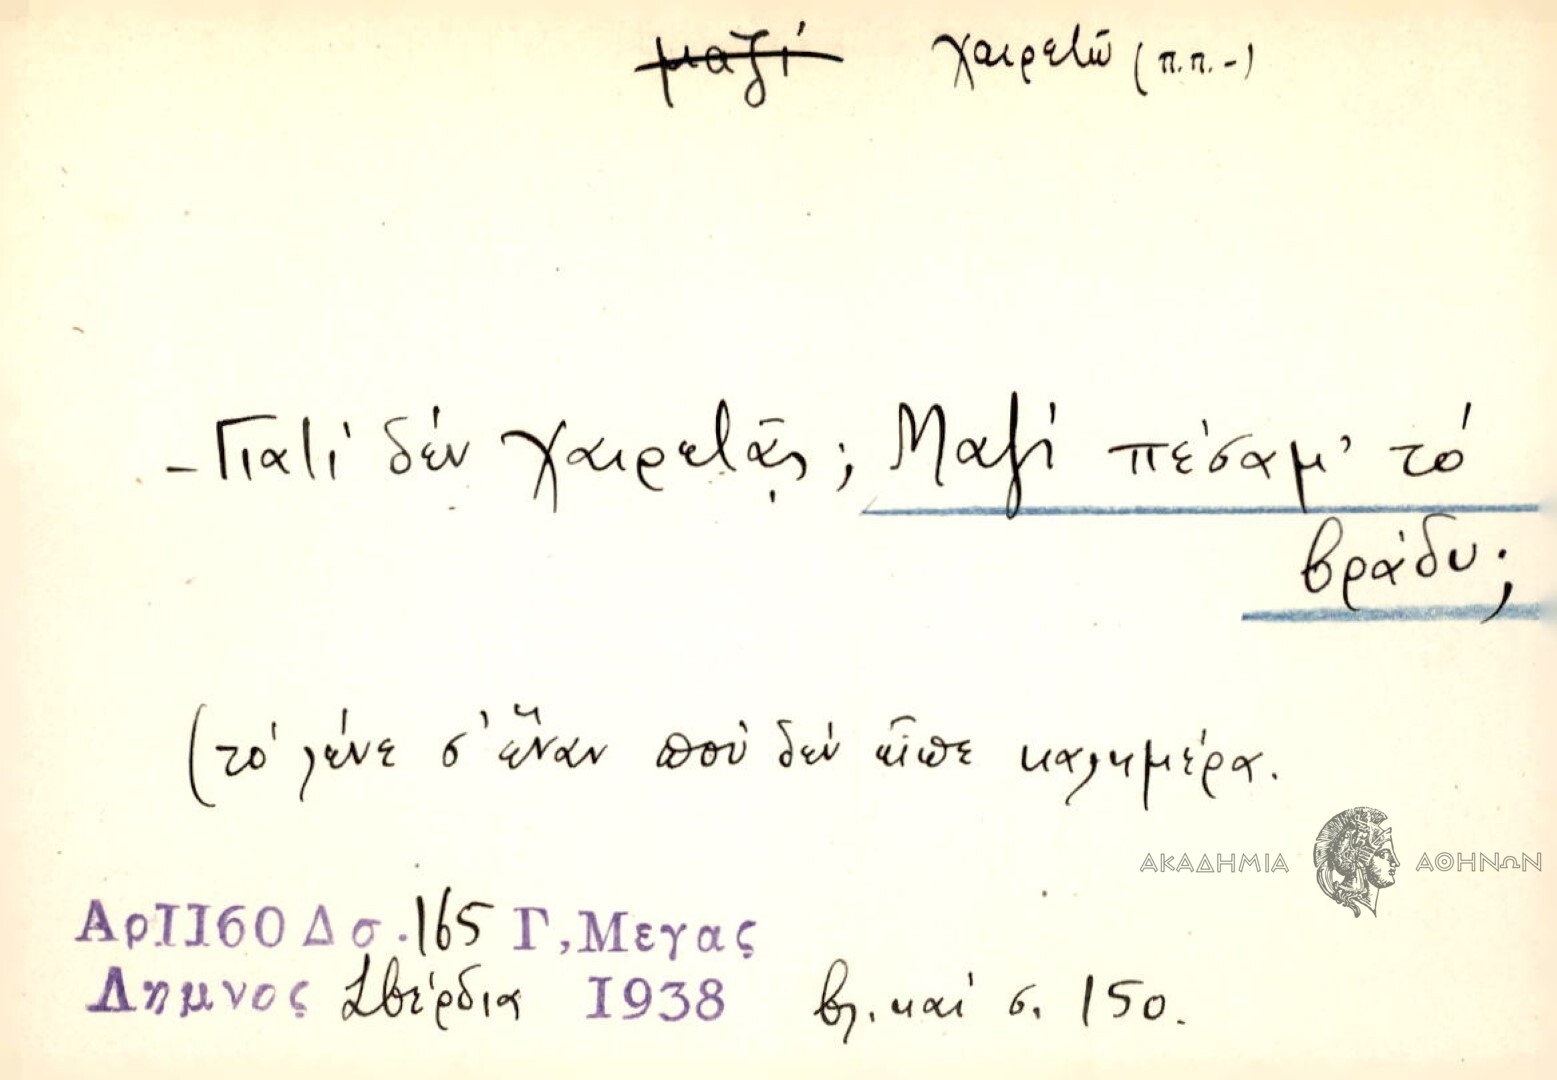 μαζί χαιρετῶ (π.π.-)
- Γιατί δέν χαιρετᾷς; Μαζί πέσαμ' τό
βράδυ;
(τό λένε σ' ἕναν πού δέν εἶπε καλημέρα.
ΑΚΑΔΗΜΙΑ ΑΘΗΝΩΝ
Αρ. 1160 Δ σ. 165 Γ, Μεγας
Λημνος Σβέρδια 1938 βλ. καί σ. 150.